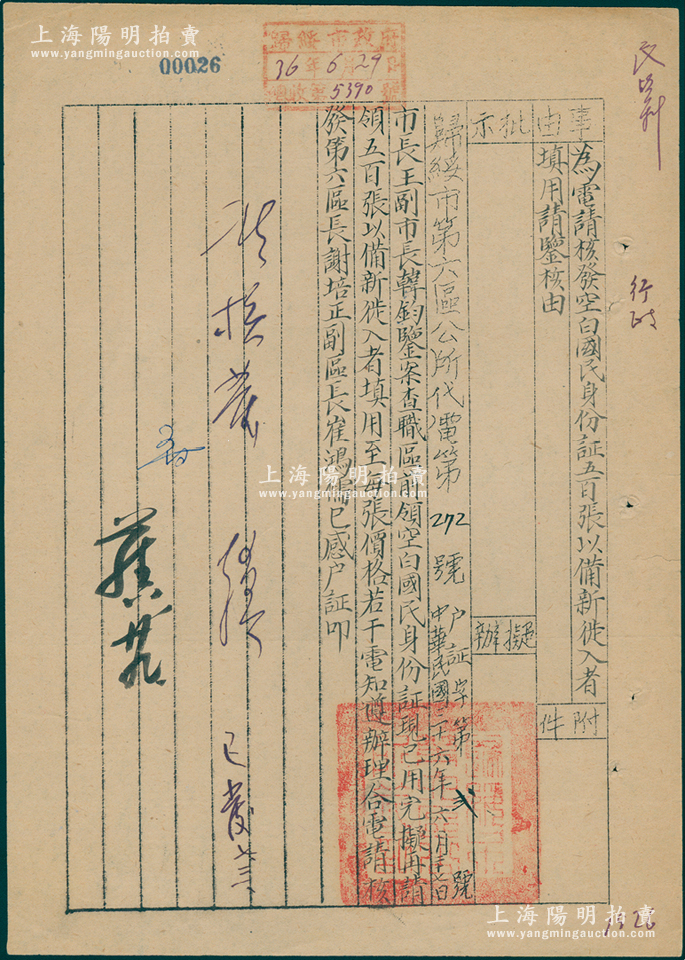 上海陽明拍賣
www.yangmingauction.com
00026
歸綏市政府
36年6月29日
收 5390 號
行政
事由
為電請核發空白國民身份証五百張以備新徙入者
填用請鑒核由
附件
批示
擬辦
歸綏市第六區公所代電第272號
戶証字第 號
中華民國三十六年六月 日
市長王副市長韓鈞鑒案查職區前領空白國民身份証現已用完擬再請
領五百張以備新徙入者填用至每張價格若干電知 辦理合電請核
發第六區長謝培正副區長崔鴻儒巳感户証叩
上海陽明拍賣
www.yangmingauction.com
已發
1526
上海陽明拍賣
www.yangmingauction.com